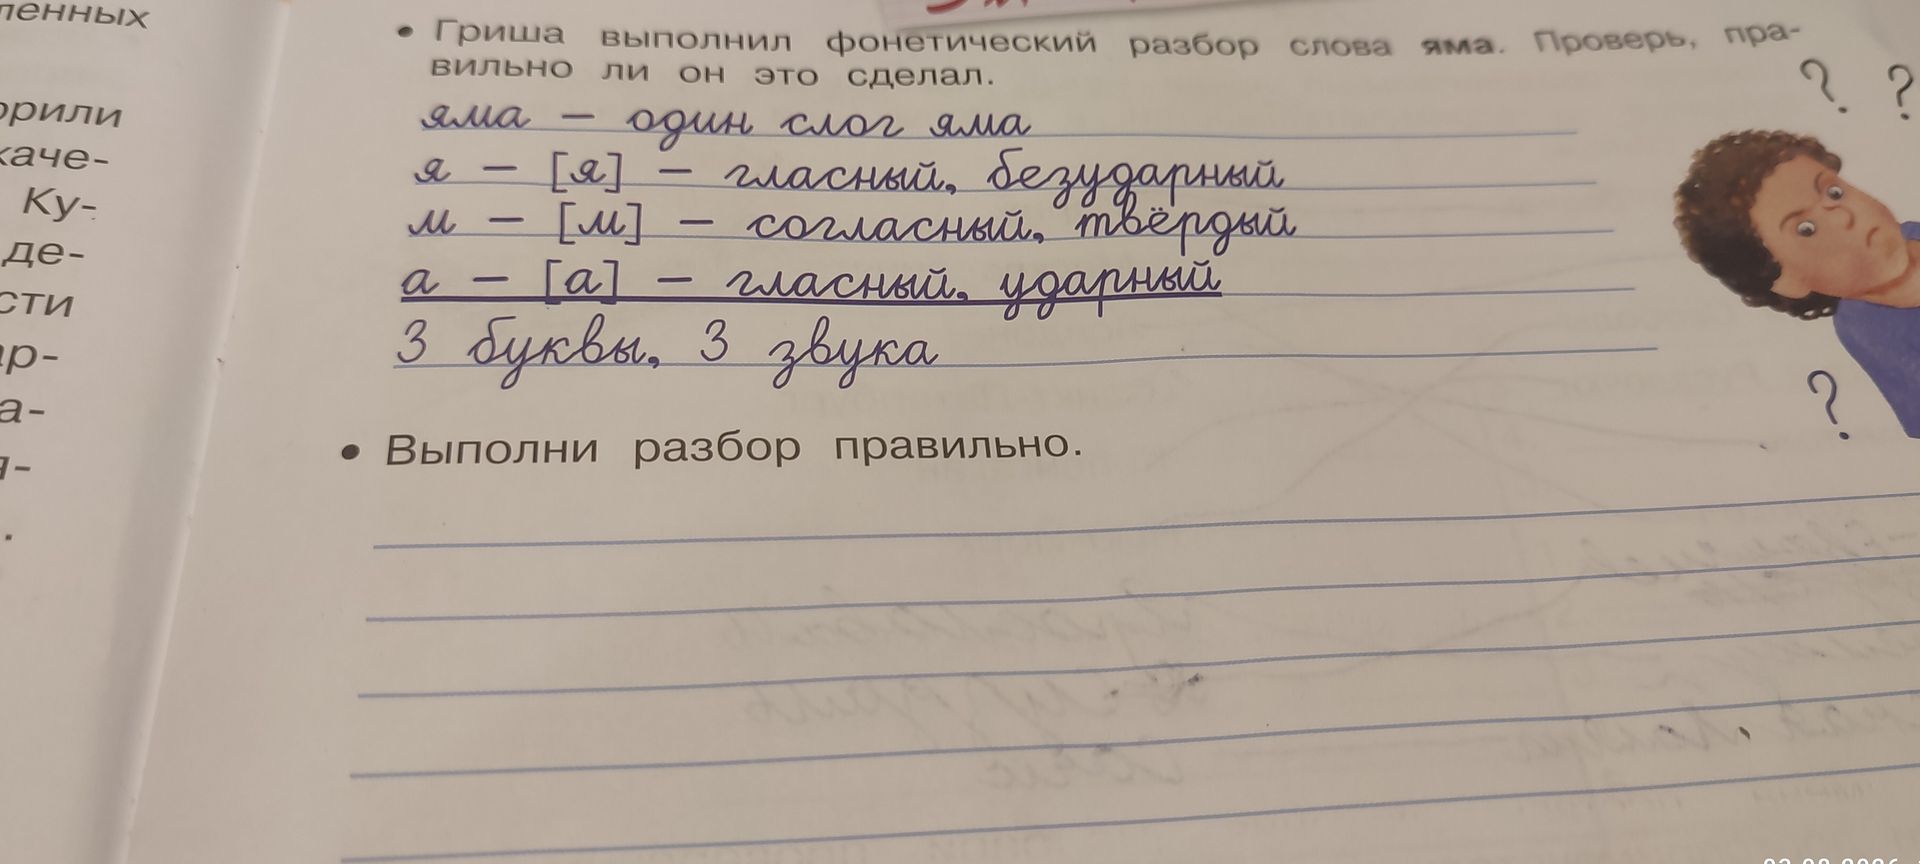 ленных
орили
каче-
Ку-
де-
сти
ар-
а-
• Гриша выполнил фонетический разбор слова яма. Проверь, пра-
вильно ли он это сделал.
яма – один слог яма
я – [я] – гласный, безударный
м – [м] – согласный, твёрдый
а – [а] – гласный, ударный
3 буквы, 3 звука
? ?
?
• Выполни разбор правильно.